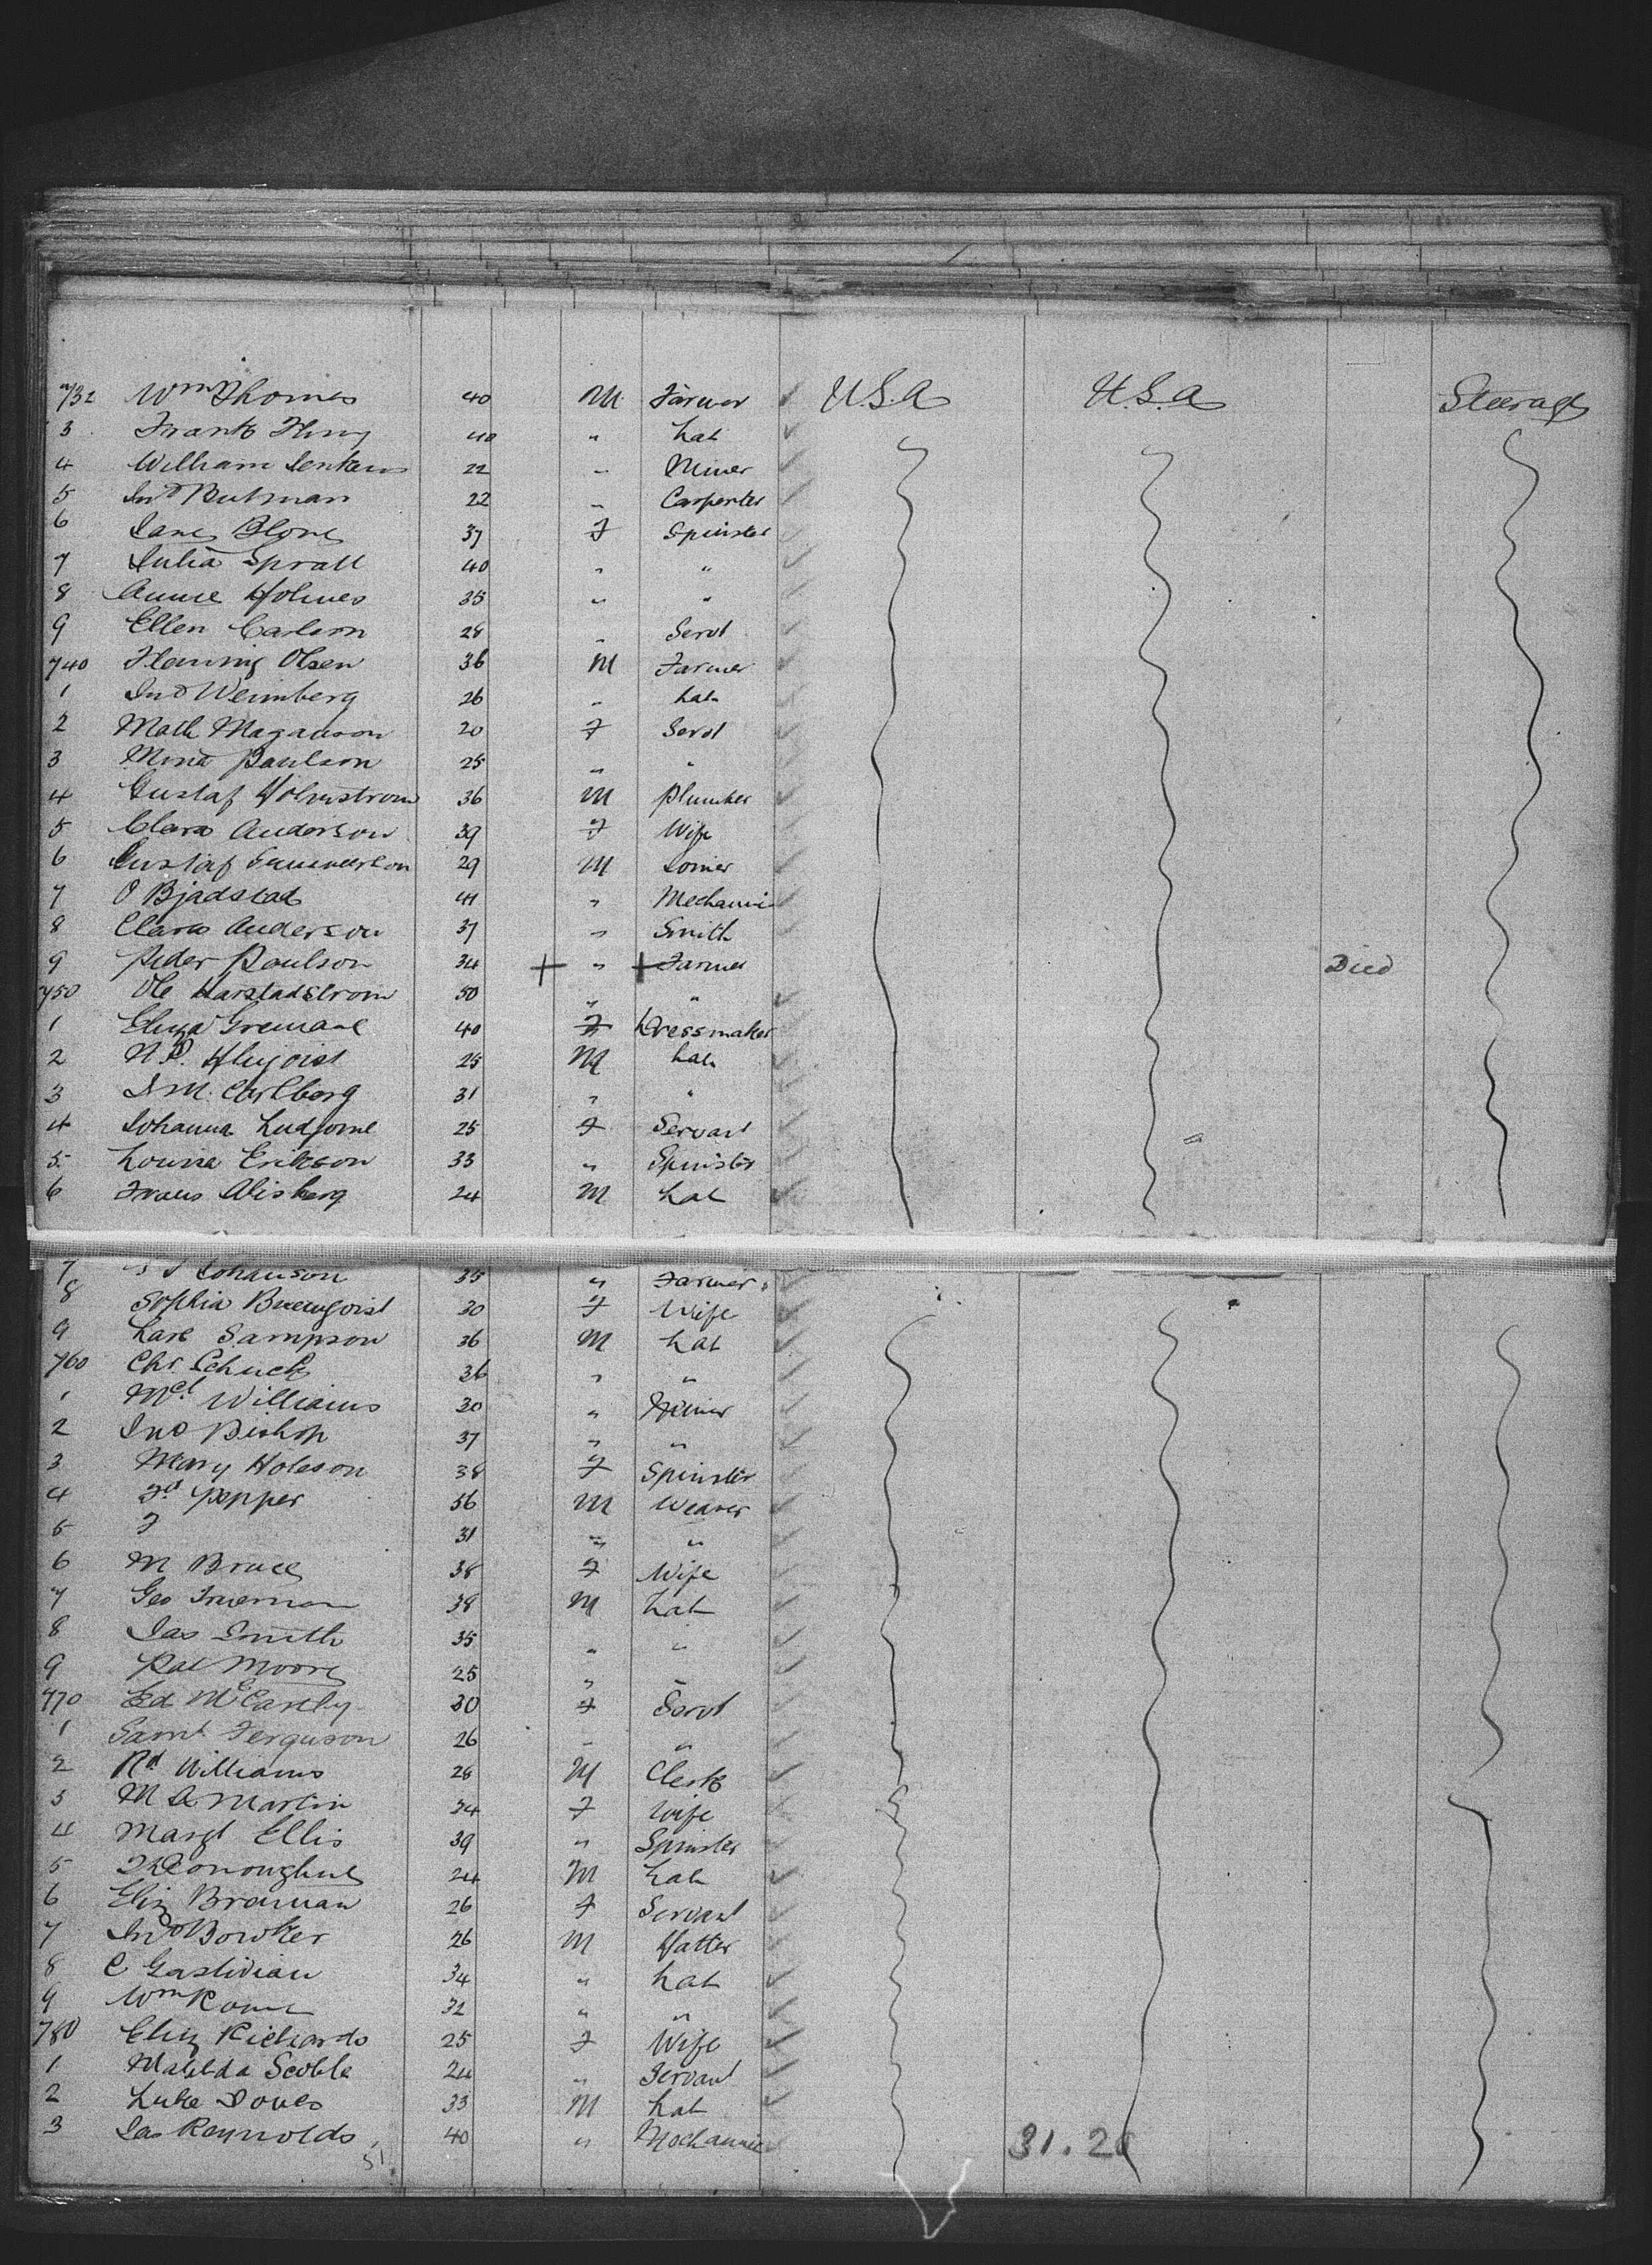 732 Wm Thomas 40 M Farmer U.S.A U.S.A Steerage
3 Frank 40 " Lab
4 William Jenkins 22 " Miner
5 Jno Putman 22 " Carpenter
6 Jane 37 F Spinster
7 Julia Spratt 40 " "
8 Annie Holmes 35 " "
9 Ellen Carlson 28 " Servt
740 Fleming Olsen 36 M Farmer
1 Jno Weimberg 26 " Lab
2 Math Maganson 20 F Servt
3 Mina Paulson 25 " "
4 Gustaf Holmstrom 36 M Plumber
5 Clara Anderson 39 F Wife
6 Gustaf 29 M Joiner
7 O Bjadstad 41 " Mechanic
8 Clara Anderson 37 " Smith
9 Peder Paulson 34 + " + Farmer Died
750 Ole Harstadstrom 50 " "
1 Eliza 40 F Dressmaker
2 N.P. 25 M Lab
3 J M. Carlberg 31 " "
4 Johanna 25 F Servant
5 Louisa Erikson 33 " Spinster
6 Frans 24 M Lab
7 Johanson 35 " Farmer
8 Sophia 30 F Wife
9 Lars Sampson 36 M Lab
760 Chr Schuck 36 " "
1 Williams 30 "
2 Jno Bishop 37 " "
3 Mary 38 F Spinster
4 Fd Popper 56 M Weaver
5 F 31 " "
6 M Bruce 38 F Wife
7 Geo Trueman 38 M Lab
8 Jas Smith 35 " "
9 Pat Moore 25 " "
770 Ed McCarthy 30 F Servt
1 Saml Ferguson 26 " "
2 Rd Williams 28 M Clerk
3 M A Martin 34 F Wife
4 Margt Ellis 39 " Spinster
5 24 M Lab
6 Eliz Brannan 26 F Servant
7 Jno Bowker 26 M Hatter
8 C 34 " Lab
9 Wm 32 " "
780 Eliz Richards 25 F Wife
1 Matilda Scoble 24 " Servant
2 Luke Jones 33 M Lab
3 Jas Reynolds 40 " Mechanic
51